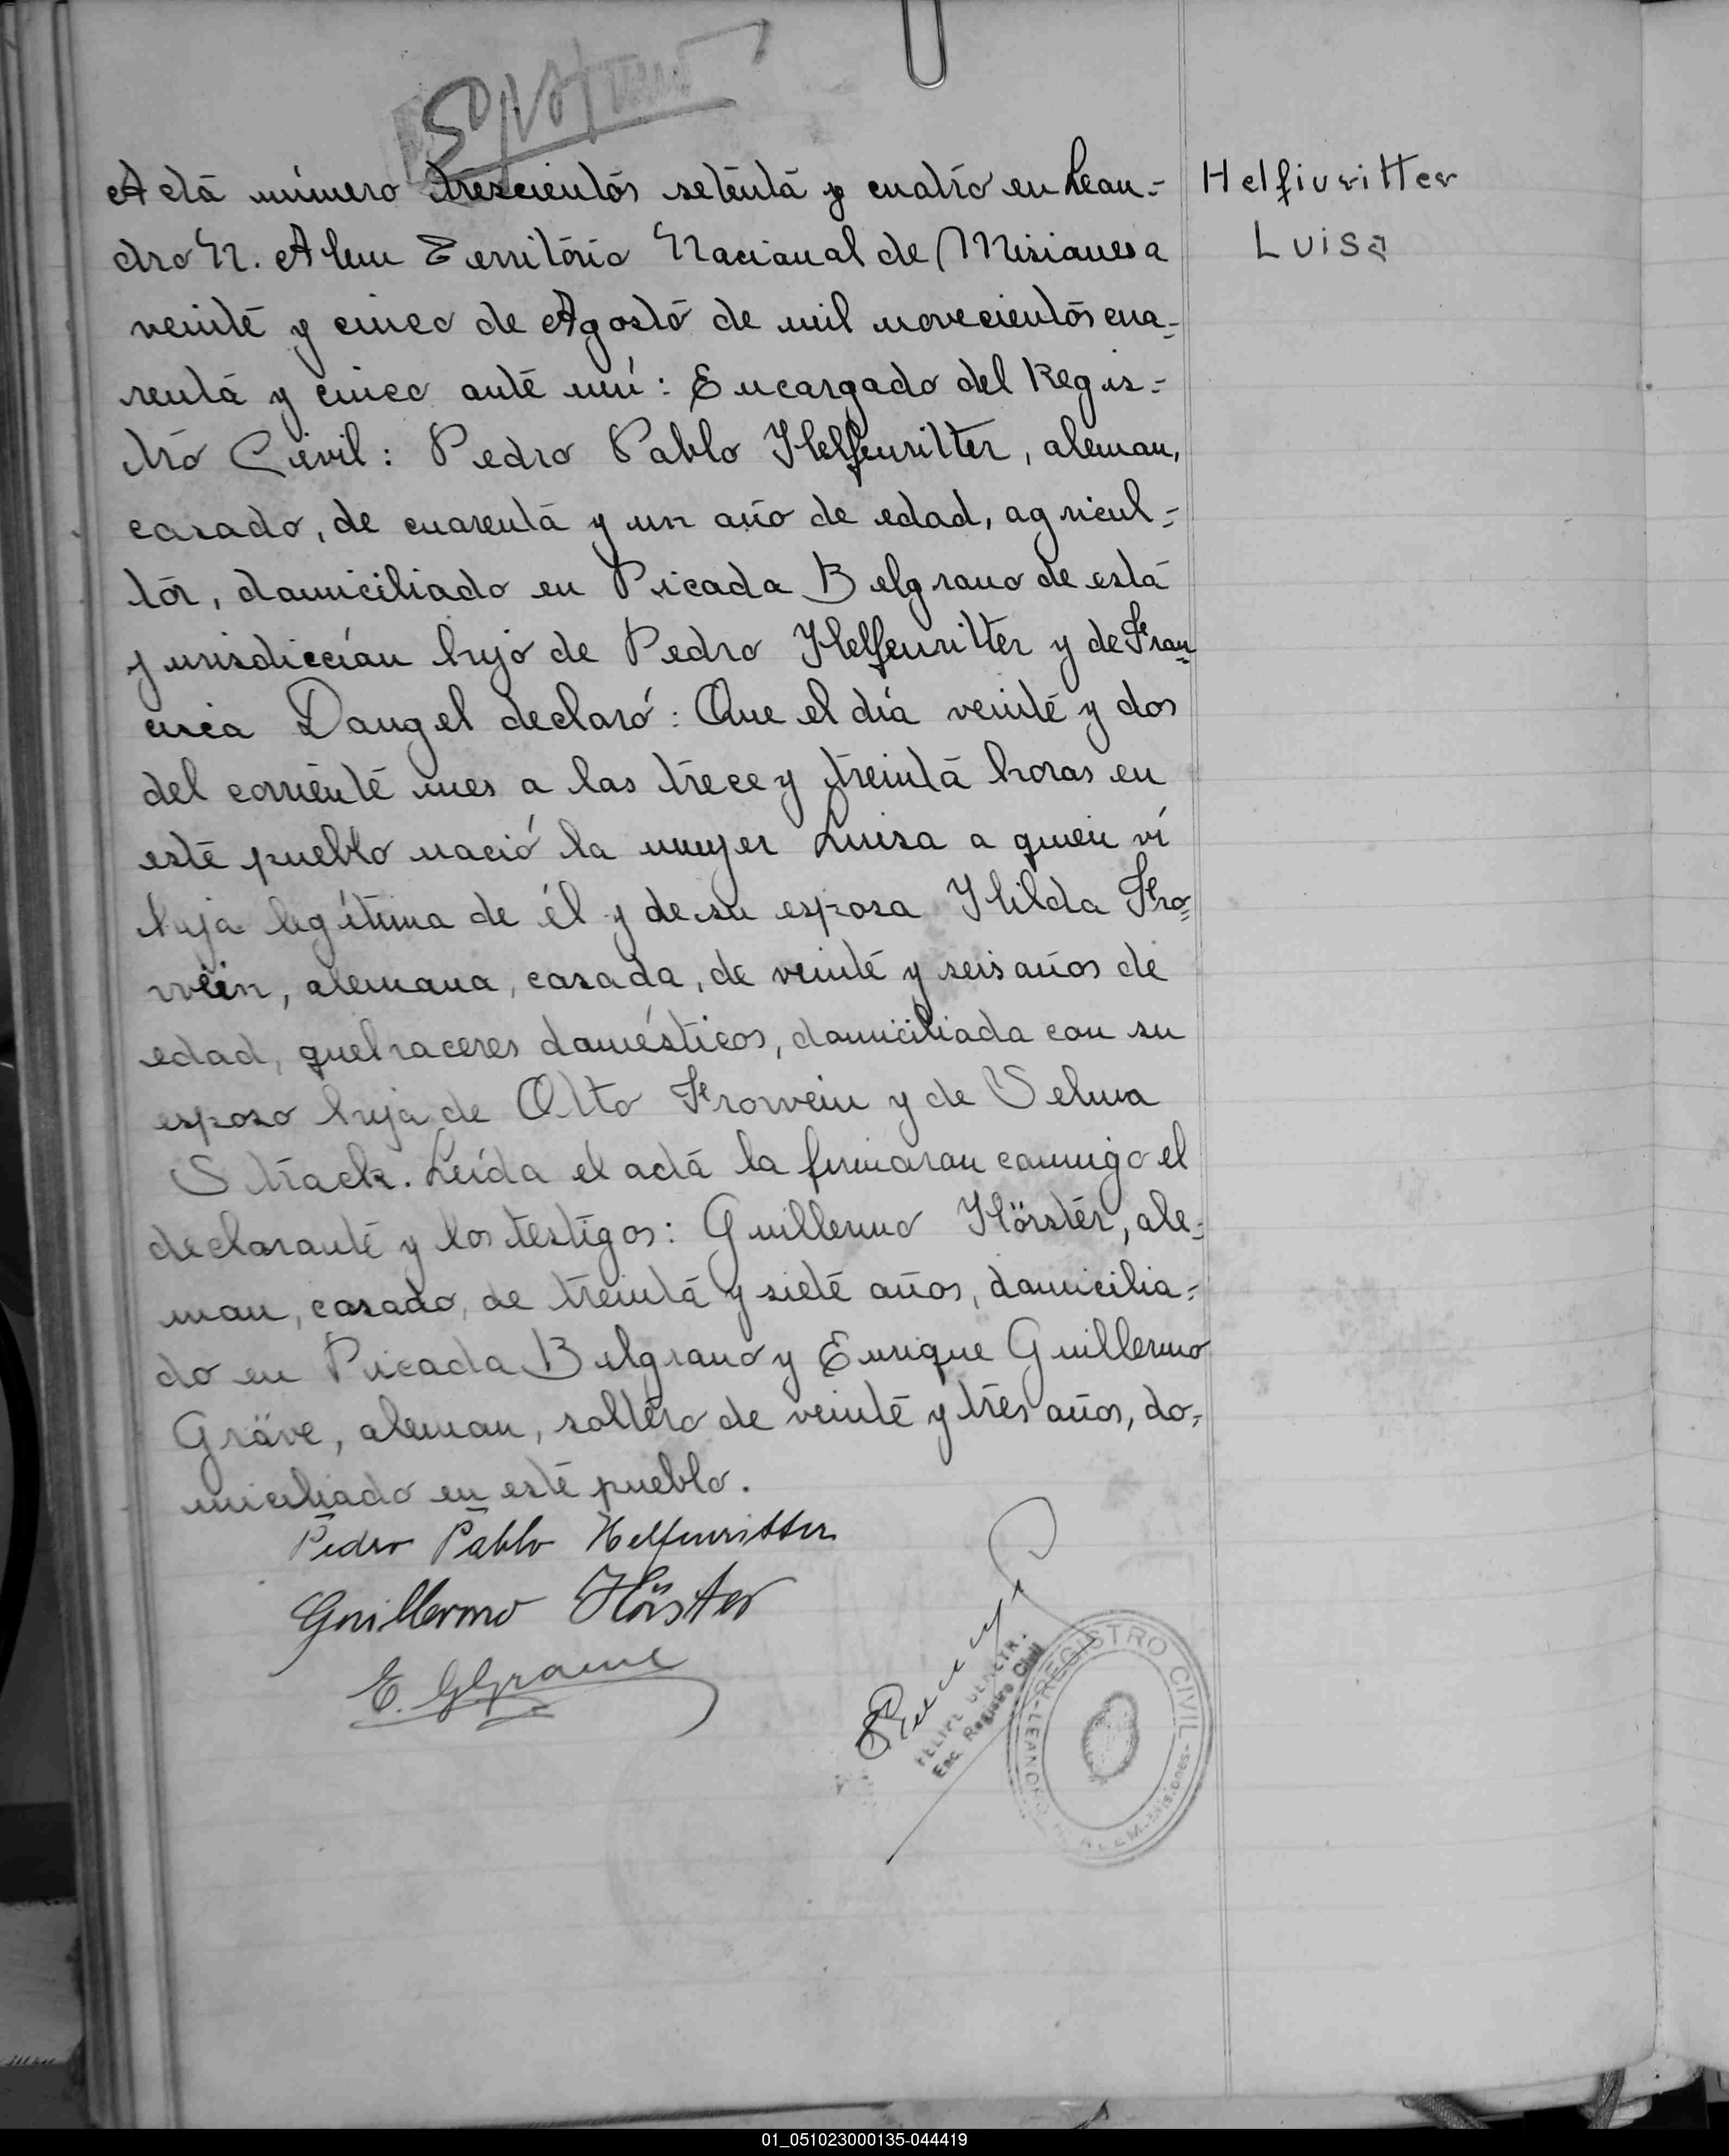 Acta número trescientos setenta y cuatro en Lean-
dro N. Alem Territorio Nacional de Misiones a
veinte y cinco de Agosto de mil novecientos cua-
renta y cinco ante mí: Encargado del Regis-
tro Civil: Pedro Pablo Helfenritter, aleman,
casado, de cuarenta y un año de edad, agricul-
tor, domiciliado en Picada Belgrano de esta
jurisdicción hijo de Pedro Helfenritter y de Fran-
cisca Dangel declaró: Que el día veinte y dos
del corriente mes a las trece y treinta horas en
este pueblo nació la mujer Luisa a quien ví
hija legítima de él y de su esposa Hilda Fro-
wein, alemana, casada, de veinte y seis años de
edad, quehaceres domésticos, domiciliada con su
esposo hija de Otto Frowein y de Selma
Strack. Leída el acta la firmaron conmigo el
declarante y los testigos: Guillermo Hörster, ale-
man, casado, de treinta y siete años, domicilia-
do en Picada Belgrano y Enrique Guillermo
Gräve, aleman, soltero de veinte y tres años, do-
miciliado en este pueblo.
Pedro Pablo Helfenritter
Guillermo Hörster
E. G. Graeve
Helfiuritter
Luisa
FELIPE
Enc. Registro Civil
REGISTRO CIVIL - Misiones - LEANDRO N. ALEM
01_051023000135-044419